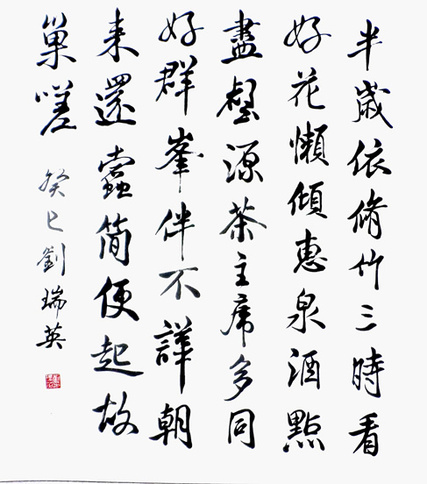 半歲依脩竹三時看
好花懶傾惠泉酒點
盡壑源茶主席多同
好群峯伴不譁朝
來還蠹簡便起故
巢嗟
癸巳劉瑞英